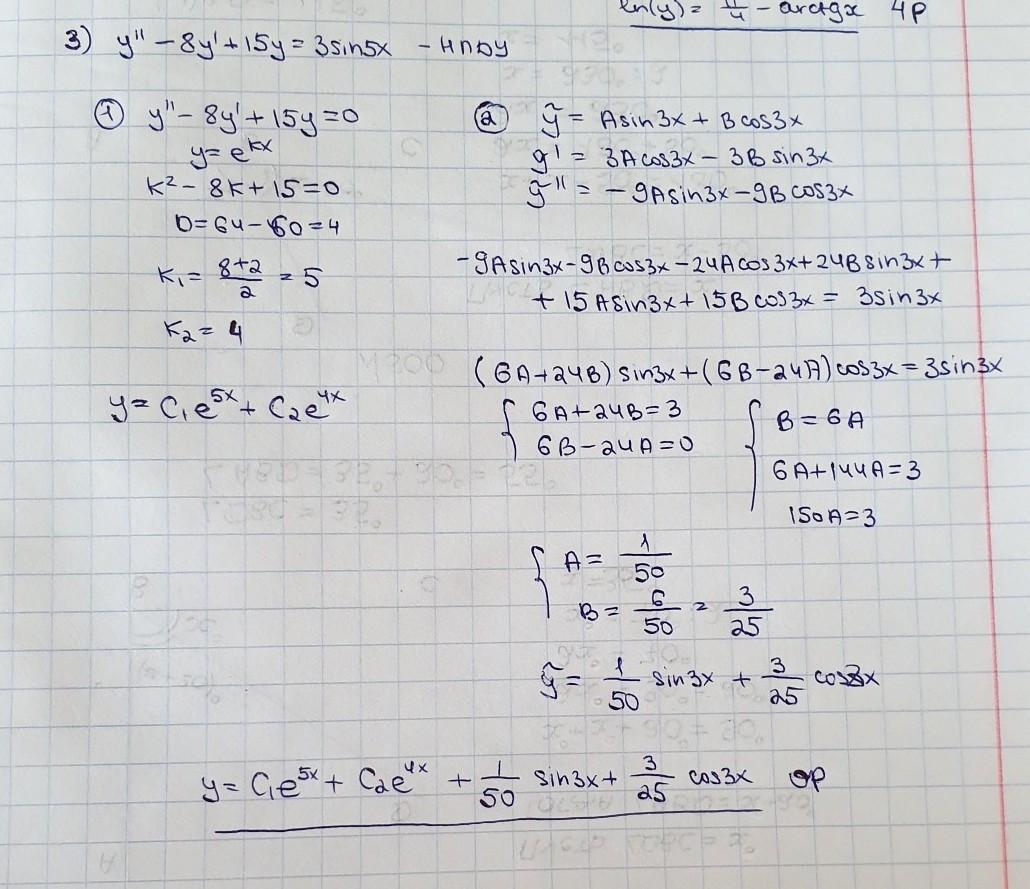 ln(y) = π/4 - arctgx ЧР
3) y'' - 8y' + 15y = 3sin5x - ЛНДУ
① y'' - 8y' + 15y = 0
y = e^kx
k² - 8k + 15 = 0
D = 64 - 60 = 4
k₁ = (8+2)/2 = 5
k₂ = 4
y = C₁e^5x + C₂e^4x
② ỹ = Asin3x + Bcos3x
ỹ' = 3Acos3x - 3Bsin3x
ỹ'' = -9Asin3x - 9Bcos3x
-9Asin3x - 9Bcos3x - 24Acos3x + 24Bsin3x +
+ 15Asin3x + 15Bcos3x = 3sin3x
(6A + 24B)sin3x + (6B - 24A)cos3x = 3sin3x
{ 6A + 24B = 3
6B - 24A = 0
{ B = 6A
6A + 144A = 3
150A = 3
{ A = 1/50
B = 6/50 = 3/25
ỹ = 1/50 sin3x + 3/25 cos3x
y = C₁e^5x + C₂e^4x + 1/50 sin3x + 3/25 cos3x ОР